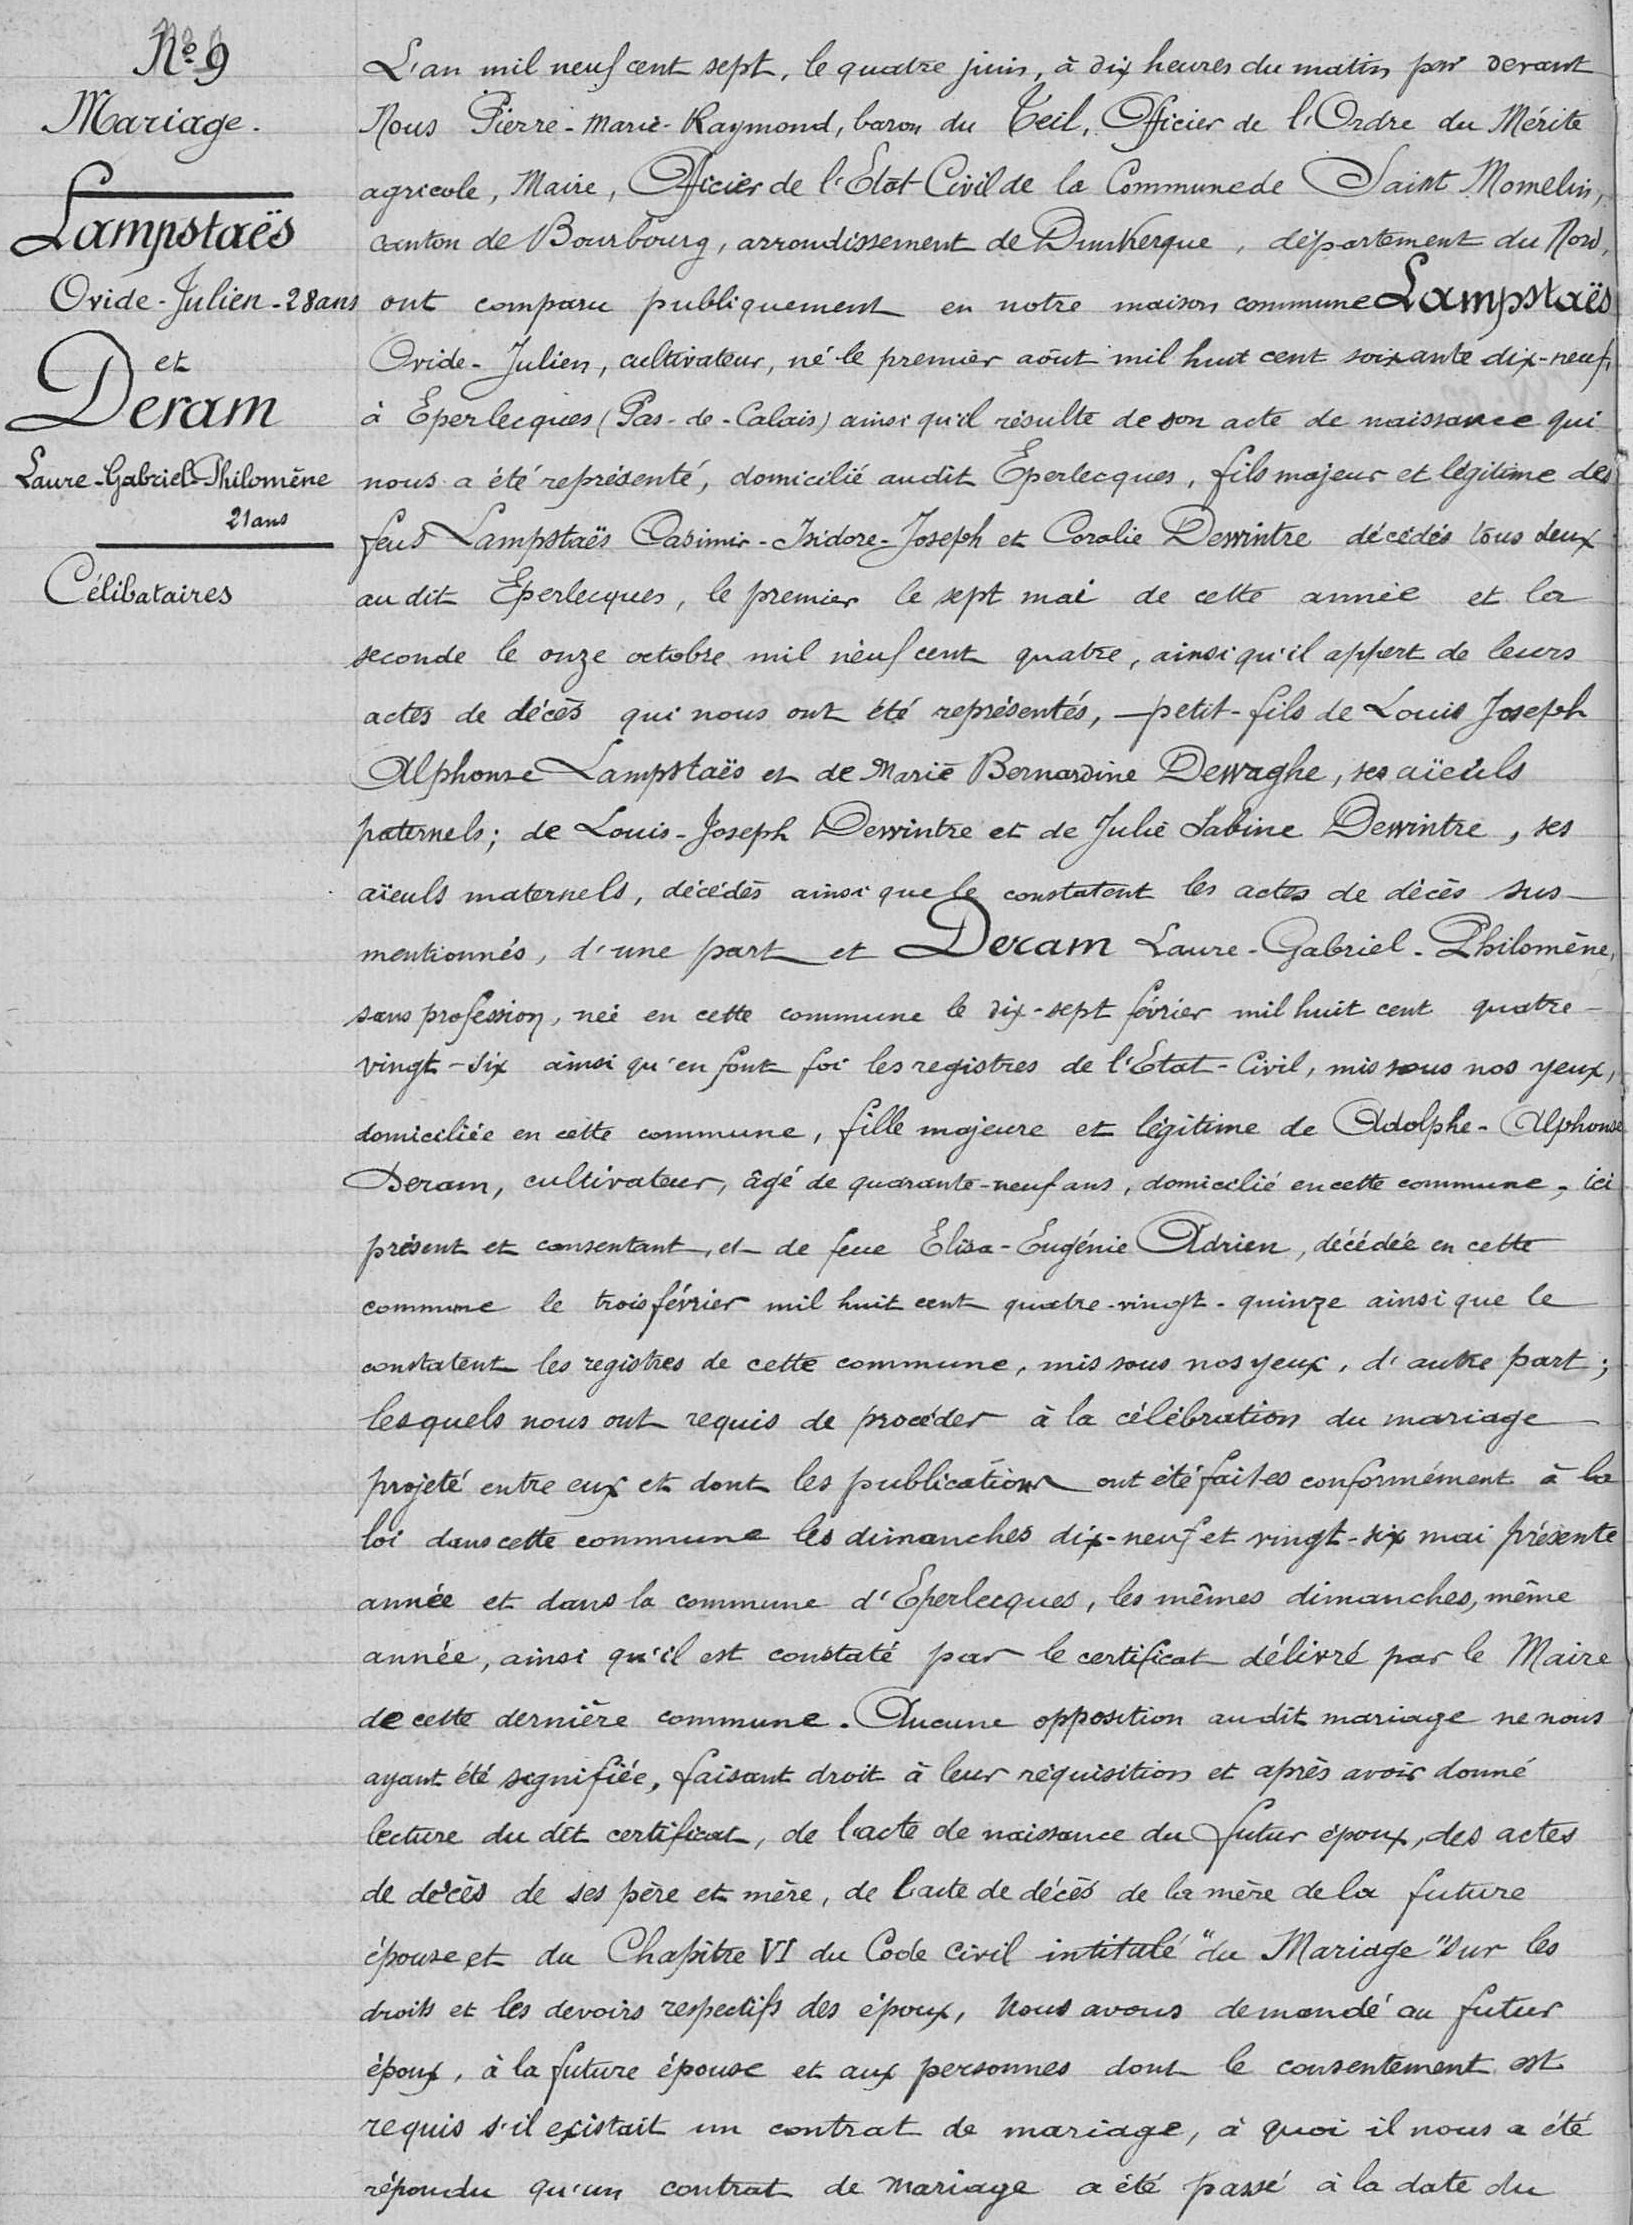 Nº 9
Mariage.
Lampstaës
Ovide-Julien-28ans
et
Deram
Laure-Gabriel-Philomène
21 ans
Célibataires
L'an mil neuf cent sept, le quatre juin, à dix heures du matin par devant
Nous Pierre-Marie-Raymond, baron du Teil, Officier de l'Ordre du Mérite
agricole, Maire, Officier de l'Etat Civil de la Commune de Saint Momelin,
canton de Bourbourg, arrondissement de Dunkerque, département du Nord,
ont comparu publiquement en notre maison commune Lampstaës
Ovide-Julien, cultivateur, né le premier août mil huit cent soixante dix-neuf,
à Eperlecques (Pas-de-Calais) ainsi qu'il résulte de son acte de naissance qui
nous a été représenté, domicilié audit Eperlecques, fils majeur et légitime des
feus Lampstaës Casimir-Isidore-Joseph et Coralie Dewintre décédés tous deux
au dit Eperlecques, le premier le sept mai de cette année et la
seconde le onze octobre mil neuf cent quatre, ainsi qu'il appert de leurs
actes de décès qui nous ont été représentés, — petit-fils de Louis Joseph
Alphonse Lampstaës et de Marie Bernardine Dewaghe, ses aïeuls
paternels; de Louis-Joseph Dewintre et de Julie Sabine Dewintre, ses
aïeuls maternels, décédés ainsi que le constatent les actes de décès sus-
mentionnés, d'une part et Deram Laure-Gabriel-Philomène,
sans profession, née en cette commune le dix-sept février mil huit cent quatre-
vingt-six ainsi qu'en font foi les registres de l'Etat-Civil, mis sous nos yeux,
domiciliée en cette commune, fille majeure et légitime de Adolphe-Alphonse
Deram, cultivateur, âgé de quarante-neuf ans, domicilié en cette commune, ici
présent et consentant, et de feue Elisa-Eugénie Adrien, décédée en cette
commune le trois février mil huit cent quatre-vingt-quinze ainsi que le
constatent les registres de cette commune, mis sous nos yeux, d'autre part;
lesquels nous ont requis de procéder à la célébration du mariage
projeté entre eux et dont les publications ont été faites conformément à la
loi dans cette commune les dimanches dix-neuf et vingt-six mai présente
année et dans la commune d'Eperlecques, les mêmes dimanches, même
année, ainsi qu'il est constaté par le certificat délivré par le Maire
de cette dernière commune. Aucune opposition au dit mariage ne nous
ayant été signifiée, faisant droit à leur réquisition et après avoir donné
lecture du dit certificat, de l'acte de naissance du futur époux, des actes
de décès de ses père et mère, de l'acte de décès de la mère de la future
épouse et du Chapitre VI du Code Civil intitulé "du Mariage" sur les
droits et les devoirs respectifs des époux, Nous avons demandé au futur
époux, à la future épouse et aux personnes dont le consentement est
requis s'il existait un contrat de mariage, à quoi il nous a été
répondu qu'un contrat de mariage a été passé à la date du